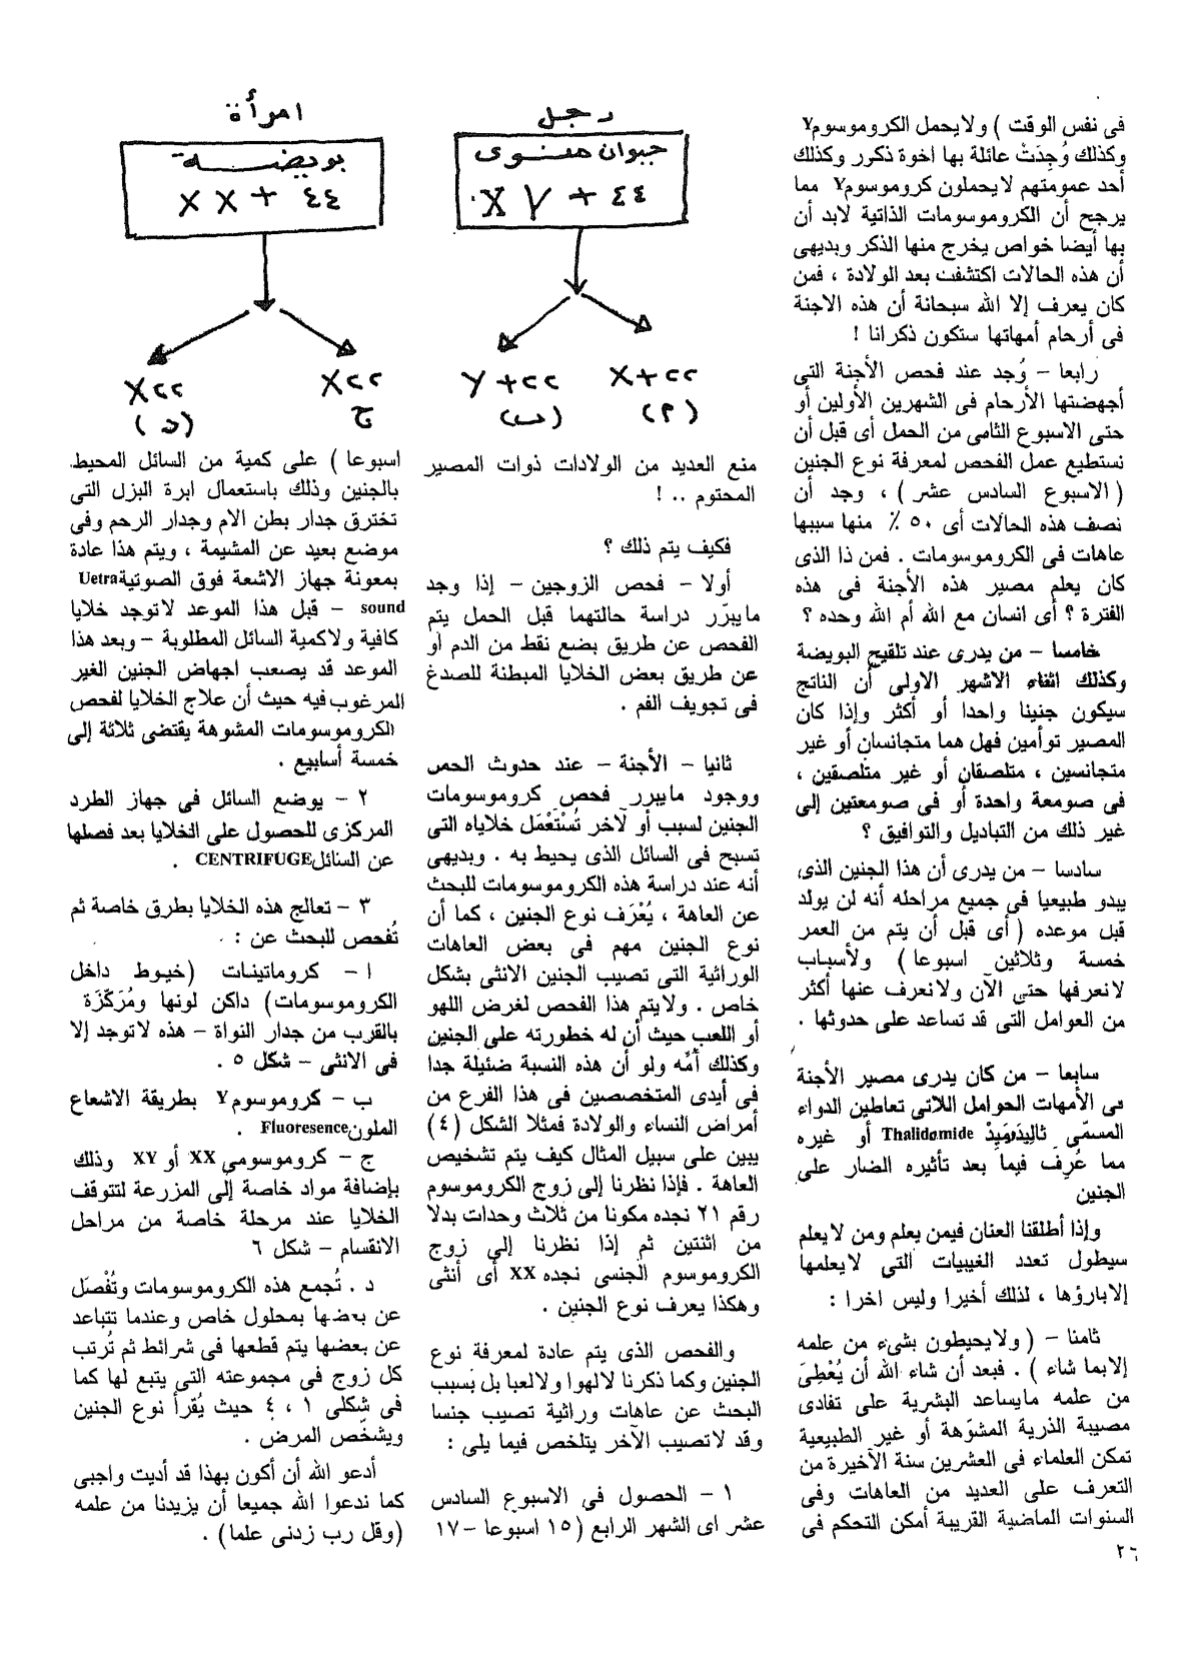 فى نفس الوقت ) ولايحمل الكروموسومY
وكذلك وُجِدَتْ عائلة بها اخوة ذكرر وكذلك
أحد عمومتهم لايحملون كروموسومY مما
يرجح أن الكروموسومات الذاتية لابد أن
بها أيضا خواص يخرج منها الذكر وبديهى
أن هذه الحالات اكتشفت بعد الولادة ، فمن
كان يعرف إلا الله سبحانة أن هذه الاجنة
فى أرحام أمهاتها ستكون ذكرانا !
رابعا – وُجد عند فحص الأجنة التى
أجهضتها الأرحام فى الشهرين الأولين أو
حتى الاسبوع الثامى من الحمل أى قبل أن
نستطيع عمل الفحص لمعرفة نوع الجنين
( الاسبوع السادس عشر ) ، وجد أن
نصف هذه الحالات أى ٥٠ ٪ منها سببها
عاهات فى الكروموسومات . فمن ذا الذى
كان يعلم مصير هذه الأجنة فى هذه
الفترة ؟ أى انسان مع الله أم الله وحده ؟
خامسا – من يدرى عند تلقيح البويضة
وكذلك اثناء الاشهر الاولى أن الناتج
سيكون جنينا واحدا أو أكثر وإذا كان
المصير توأمين فهل هما متجانسان أو غير
متجانسين ، متلصقان أو غير متلصقين ،
فى صومعة واحدة أو فى صومعتين إلى
غير ذلك من التباديل والتوافيق ؟
سادسا – من يدرى أن هذا الجنين الذى
يبدو طبيعيا فى جميع مراحله أنه لن يولد
قبل موعده ( أى قبل أن يتم من العمر
خمسة وثلاثين اسبوعا ) ولأسباب
لانعرفها حتى الآن ولانعرف عنها أكثر
من العوامل التى قد تساعد على حدوثها .
سابعا – من كان يدرى مصير الأجنة
فى الأمهات الحوامل اللاتى تعاطين الدواء
المسمّى ثالِيدَمَيِدْ Thalidomide أو غيره
مما عُرِف فيما بعد تأثيره الضار على
الجنين
وإذا أطلقنا العنان فيمن يعلم ومن لايعلم
سيطول تعدد الغيبيات التى لايعلمها
إلابارؤها ، لذلك أخيرا وليس اخرا :
ثامنا – ( ولايحيطون بشىء من علمه
إلابما شاء ) . فبعد أن شاء الله أن يُعْطِىَ
من علمه مايساعد البشرية على تفادى
مصيبة الذرية المشوّهة أو غير الطبيعية
تمكن العلماء فى العشرين سنة الآخيرة من
التعرف على العديد من العاهات وفى
السنوات الماضية القريبة أمكن التحكم فى
رجل
حيوان منوى
٤٤ + X Y
X+٢٢
Y+٢٢
(أ)
(ب)
منع العديد من الولادات ذوات المصير
المحتوم .. !
فكيف يتم ذلك ؟
أولا – فحص الزوجين – إذا وجد
مايبرّر دراسة حالتهما قبل الحمل يتم
الفحص عن طريق بضع نقط من الدم أو
عن طريق بعض الخلايا المبطنة للصدغ
فى تجويف الفم .
ثانيا – الأجنة – عند حدوث الحمى
ووجود مايبرر فحص كروموسومات
الجنين لسبب أو لآخر تُسْتَعْمَل خلاياه التى
تسبح فى السائل الذى يحيط به . وبديهى
أنه عند دراسة هذه الكروموسومات للبحث
عن العاهة ، يُعْرَف نوع الجنين ، كما أن
نوع الجنين مهم فى بعض العاهات
الوراثية التى تصيب الجنين الانثى بشكل
خاص . ولايتم هذا الفحص لغرض اللهو
أو اللعب حيث أن له خطورته على الجنين
وكذلك أمُّه ولو أن هذه النسبة ضئيلة جدا
فى أيدى المتخصصين فى هذا الفرع من
أمراض النساء والولادة فمثلا الشكل (٤)
يبين على سبيل المثال كيف يتم تشخيص
العاهة . فإذا نظرنا إلى زوج الكروموسوم
رقم ٢١ نجده مكونا من ثلاث وحدات بدلا
من اثنتين ثم إذا نظرنا إلى زوج
الكروموسوم الجنسى نجده XX أى أنثى
وهكذا يعرف نوع الجنين .
والفحص الذى يتم عادة لمعرفة نوع
الجنين وكما ذكرنا لالهوا ولالعبا بل بسبب
البحث عن عاهات وراثية تصيب جنسا
وقد لاتصيب الآخر يتلخص فيما يلى :
١ – الحصول فى الاسبوع السادس
عشر اى الشهر الرابع (١٥ اسبوعا –١٧
امرأة
بويضة
٤٤ + X X
X٢٢
X٢٢
ج
(د)
اسبوعا ) على كمية من السائل المحيط
بالجنين وذلك باستعمال ابرة البزل التى
تخترق جدار بطن الام وجدار الرحم وفى
موضع بعيد عن المشيمة ، ويتم هذا عادة
بمعونة جهاز الاشعة فوق الصوتيةUetra
sound – قبل هذا الموعد لاتوجد خلايا
كافية ولاكمية السائل المطلوبة – وبعد هذا
الموعد قد يصعب اجهاض الجنين الغير
المرغوب فيه حيث أن علاج الخلايا لفحص
الكروموسومات المشوهة يقتضى ثلاثة إلى
خمسة أسابيع .
٢ – يوضع السائل فى جهاز الطرد
المركزى للحصول على الخلايا بعد فصلها
عن السائلCENTRIFUGE .
٣ – تعالج هذه الخلايا بطرق خاصة ثم
تُفحص للبحث عن :
ا – كروماتينات (خيوط داخل
الكروموسومات) داكن لونها ومُرَكَّزَة
بالقرب من جدار النواة – هذه لاتوجد إلا
فى الانثى – شكل ٥ .
ب – كروموسومY بطريقة الاشعاع
الملونFluoresence .
ج – كروموسومي XX أو XY وذلك
بإضافة مواد خاصة إلى المزرعة لتتوقف
الخلايا عند مرحلة خاصة من مراحل
الانقسام – شكل ٦
د . تُجمع هذه الكروموسومات وتُفْصَل
عن بعضها بمحلول خاص وعندما تتباعد
عن بعضها يتم قطعها فى شرائط ثم تُرتب
كل زوج فى مجموعته التى يتبع لها كما
فى شكلى ١ ، ٤ حيث يُقرأ نوع الجنين
ويشخّص المرض .
أدعو الله أن أكون بهذا قد أديت واجبى
كما ندعوا الله جميعا أن يزيدنا من علمه
(وقل رب زدنى علما) .
٢٦